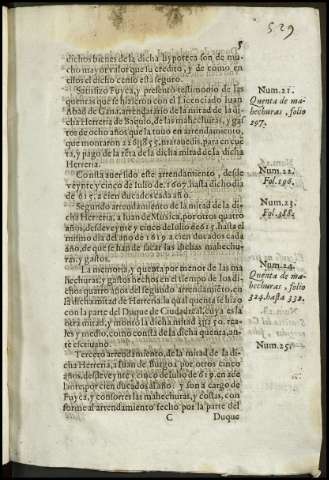 529
5
dichos bienes de la dicha hypoteca son de mu-
cho mayor valor que su credito, y de como en
ellos el dicho censo esta seguro.
Satisfizo Fuyca, y presentò testimonio de las
quentas que se hizieron con el Licenciado Iuan
Abad de Gana, arrendatario de la mitad de la di-
cha Herreria de Baquio, de las mahechuras, y gas-
tos de ocho años que la tuuo en arrendamiento,
que montaron 228U855. marauedis, para en cuẽ
ta, y pago de la rẽta de la dicha mitad de la dicha
Herreria.
Consta auer sido este arrendamiento, desde
veynte y cinco de Iulio de 1607. hasta dicho dia
de 615. a cien ducados cada año.
Segundo arrendamiento de la mitad de la di
cha Herreria, a Iuan de Musica, por otros quatro
años, desde veynte y cinco de Iulio de 615. hasta el
mismo dia del año de 1619. a cien ducados cada
año, de que se han de sacar las dichas mahechu-
ras, y gastos.
La memoria, y quenta por menor de las ma
hechuras, y gastos hechos en el tiempo de los di-
chos quatro años del segundo arrendamiẽto, en
la dicha mitad de Herreria, la qual quenta se hizo
con la parte del Duque de Ciudadreal, cuya es la
otra mitad, y montò la dicha mitad 2U150. rea-
les y medio, como consta de la dicha quenta, an-
te escriuano.
Tercero arrendamiento, de la mitad de la di-
cha Herreria, a Iuan de Burgoa por otros cinco
años, desde veynte y cinco de Iulio de 619. en ade
lante, por cien ducados al año: y son a cargo de
Fuyca, y consortes las mahechuras, y costas, con
forme al arrendamiento fecho por la parte del
C Duque
Num. 21.
Quenta de ma-
hechuras, folio
297.
Num. 22.
Fol. 296.
Num. 23.
Fol. 318.
Num. 24.
Quenta de ma-
hechuras, folio
324. hasta 332.
Num. 25.